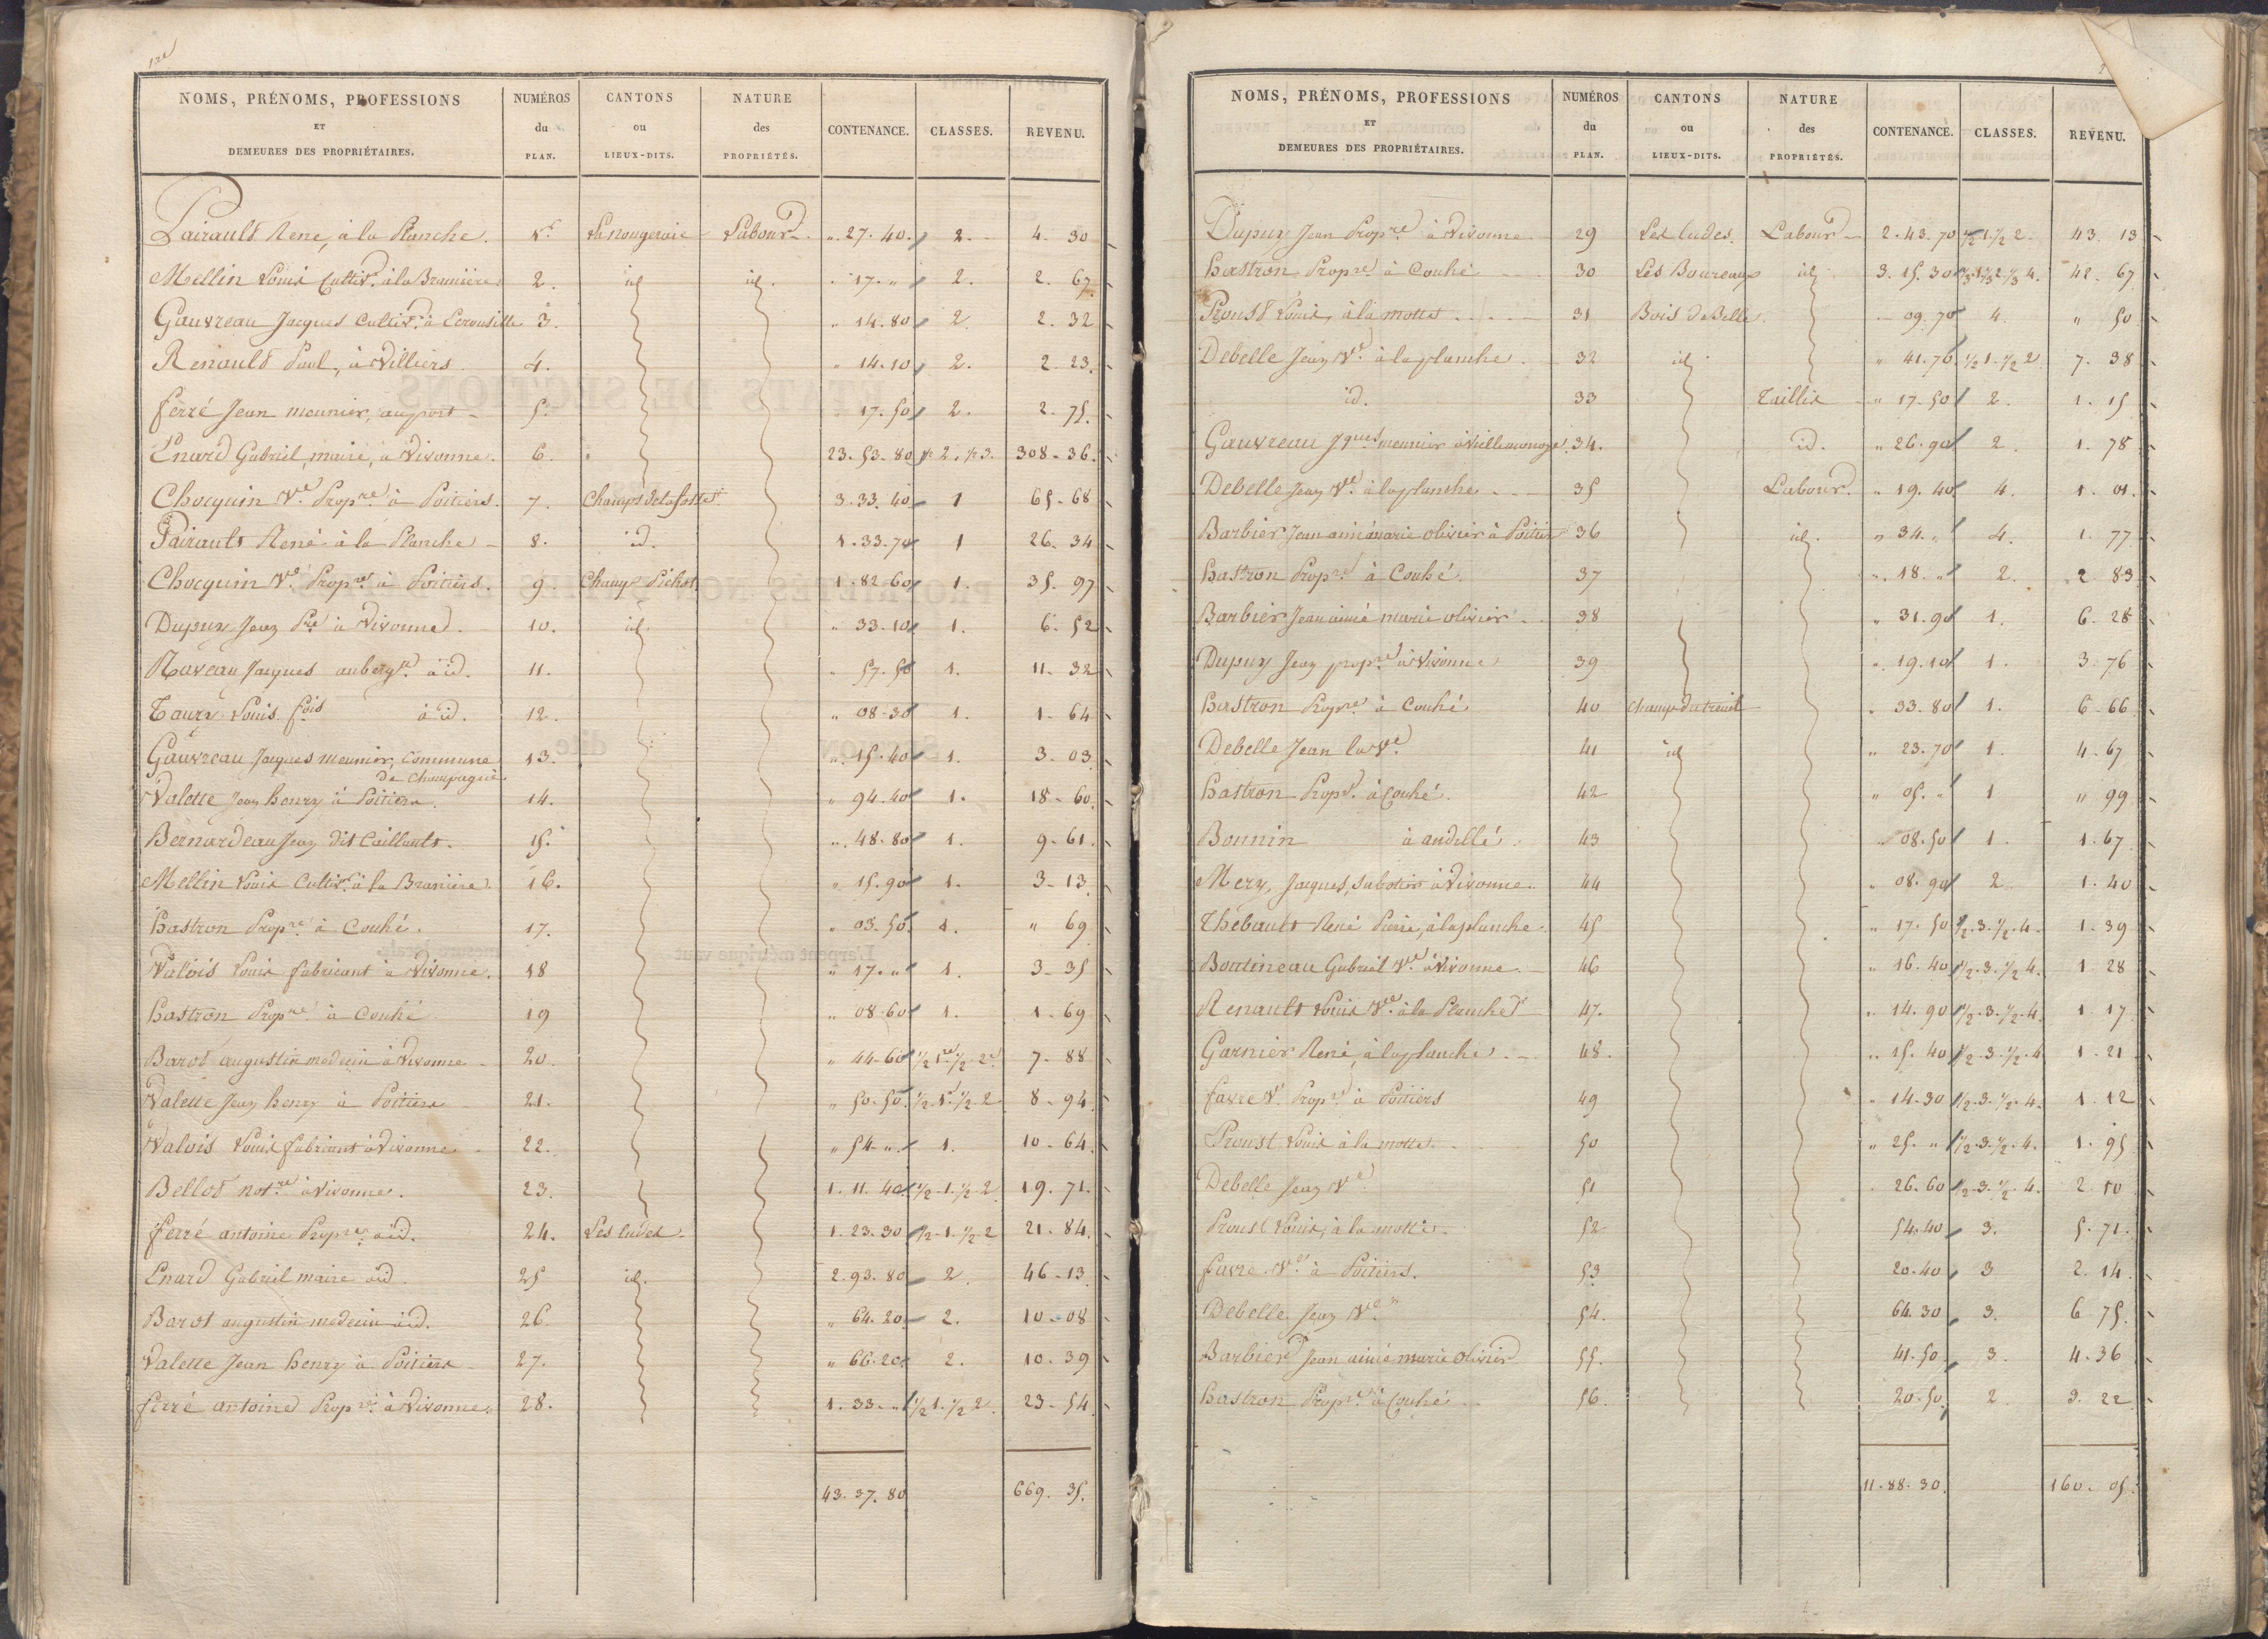 1re
NOMS, PRÉNOMS, PROFESSIONS ET DEMEURES DES PROPRIÉTAIRES. NUMÉROS du PLAN. CANTONS ou LIEUX-DITS. NATURE des PROPRIÉTÉS. CONTENANCE. CLASSES. REVENU.
Pairault René, à la Planche. 1er La nougeraie Labour „. 27. 40. 2. 4. 30
Mellin Louis Cultivr. à la Bramière 2. id id. „ 17. „ 2. 2. 67.
Gauvreau Jacques Cultivr. à 3. „ 14. 80 2. 2. 32
Renault Paul, à Villiers 4. „ 14. 10 2. 2. 23.
ferré Jean meunier, au port 5. „ 17. 50 2. 2. 75.
Enard Gabriel, maire, à Vivonne. 6. 23. 53. 80 ½ 2. ½ 3. 308. 36.
Chocquin Ve. Propre. à Poitiers. 7. Champs de la fosse 3. 33. 40 1 65. 68
Pairault René à la Planche 8. id. 1. 33. 70 1 26. 34
Chocquin Ve. Propre. à Poitiers. 9. Champ Pichot 1. 82. 60 1. 35. 97
Dupuy Jean Pre à Vivonne. 10. id. „ 33. 10 1. 6. 52
Naveau Jacques aubergte. à id. 11. „ 57. 50 1. 11. 32
Taury Louis fois à id. 12. „ 08. 30 1. 1. 64
Gauvreau Jacques meunier, Commune de Champagné 13. „ 15. 40 1. 3. 03
Valette Jean henry à Poitiers. 14. „ 94. 40 1. 18. 60.
Bernardeau Jean dit Caillault. 15. „. 48. 80 1. 9. 61.
Mellin Louis Cultivr. à la Bramière. 16. „ 15. 90 1. 3. 13
hastron Propre à Couhé. 17. „ 03. 50. 1. „ 69
Valois Louis fabricant à Vivonne. 18 „ 17. „ 1. 3. 35
hastron Propre à Couhé 19 „ 08. 60 1. 1. 69
Barot augustin medecin à Vivonne 20. „ 44. 60 ½ 1re ½ 2e 7. 88
Valette Jean henry à Poitiers 21. „ 50. 50 ½. 1. ½. 2 8. 94
Valois Louis fabricant à Vivonne 22. „ 54. „. 1. 10. 64
Bellot notre à Vivonne. 23. 1. 11. 40 ½. 1. ½. 2 19. 71.
ferré antoine Propre à id. 24. Les ludes. 1. 23. 30 ½. 1. ½. 2 21. 84.
Enard Gabriel maire à id. 25 id. 2. 93. 80 2. 46. 13
Barot augustin medecin à id. 26. „ 64. 20 2. 10. 08
Valette Jean henry à Poitiers 27. „ 66. 20 2. 10. 39
ferré antoine Propre à Vivonne. 28. 1. 33. „ ½ 1. ½ 2. 23. 54
43. 37. 80 669. 35.
NOMS, PRÉNOMS, PROFESSIONS ET DEMEURES DES PROPRIÉTAIRES. NUMÉROS du PLAN. CANTONS ou LIEUX-DITS. NATURE des PROPRIÉTÉS. CONTENANCE. CLASSES. REVENU.
Dupuy Jean Propre à Vivonne 29 Les ludes. Labour 2. 43. 70 ½ 1. ½ 2. 43. 13
hastron Propre à Couhé 30 Les Boureaux id. 3. 15. 30 ⅓ 1 ⅓ 2 ⅓ 4. 42. 67
Proust Louis, à la motte 31 Bois de Belle. 09. 70 4. „ 50
Debelle Jean Ve. à la planche. 32 id. „ 41. 76. ½ 1. ½ 2 7. 38
id. 33 Taillis „ 17. 50 2. 1. 15
Gauvreau Jques meunier à 34. id. „ 26. 90 2. 1. 78
Debelle Jean Ve. à la planche 35 Labour. „ 19. 40 4. 1. 01.
Barbier Jean aimé marie olivier à Poitiers 36 id. „ 34. „ 4. 1. 77
hastron Propre à Couhé. 37 „. 18. „ 2. 2 83
Barbier Jean aimé marie olivier 38 „ 31. 90 1. 6. 28
Dupuy Jean propre à Vivonne 39 „. 19. 10 1. 3. 76
hastron Propre. à Couhé 40 champ du treuil „ 33. 80 1. 6. 66
Debelle Jean la Ve. 41 id „ 23. 70 1. 4. 67
hastron Propr. à Couhé. 42 „ 05. „ 1 „ 99
Bonnin à andillé. 43 „ 08. 50 1. 1. 67
Mery, Jacques, sabotier à Vivonne. 44 „ 08. 90 2. 1. 40
Thebault René Pierre, à la planche. 45 „ 17. 50 ½. 3. ½. 4. 1. 39
Boutineau Gabriel Ve. à Vivonne. 46 „ 16. 40 ½. 3. ½ 4. 1. 28
Renault Louis Ve. à la Planche 47. „. 14. 90 ½. 3. ½. 4. 1. 17
Garnier René, à la planche. 48. „. 15. 40 ½. 3. ½. 4 1. 21
favre V. Propre à Poitiers 49 „ 14. 30 ½. 3. ½. 4. 1. 12
Proust Louis à la motte. 50 „ 25. „ ½. 3. ½. 4. 1. 95
Debelle Jean Ve 51 26. 60 ½. 3. ½. 4. 2. 10
Proust Louis, à la motte 52 54. 40 3. 5. 71.
favre Ve. à Poitiers. 53 20. 40 3 2. 14.
Debelle Jean Ve. 54. 64. 30 3. 6 75.
Barbier Jean aimé marie olivier 55. 41. 50 3. 4. 36
hastron Propre. à Couhé 56. 20. 50 2. 3. 22
11. 88. 30. 160. 05.